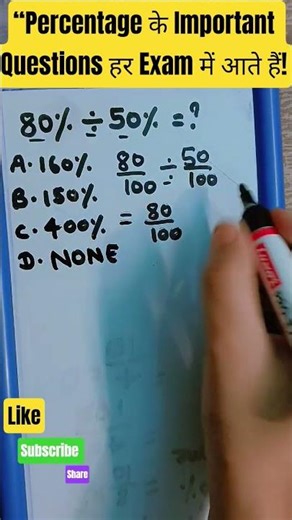 “Percentage के Important
Questions हर Exam में आते हैं!
80% ÷ 50% = ?
A. 160% 80/100 ÷ 50/100
B. 150%
C. 400% = 80/100
D. NONE
Like
Subscribe
Share